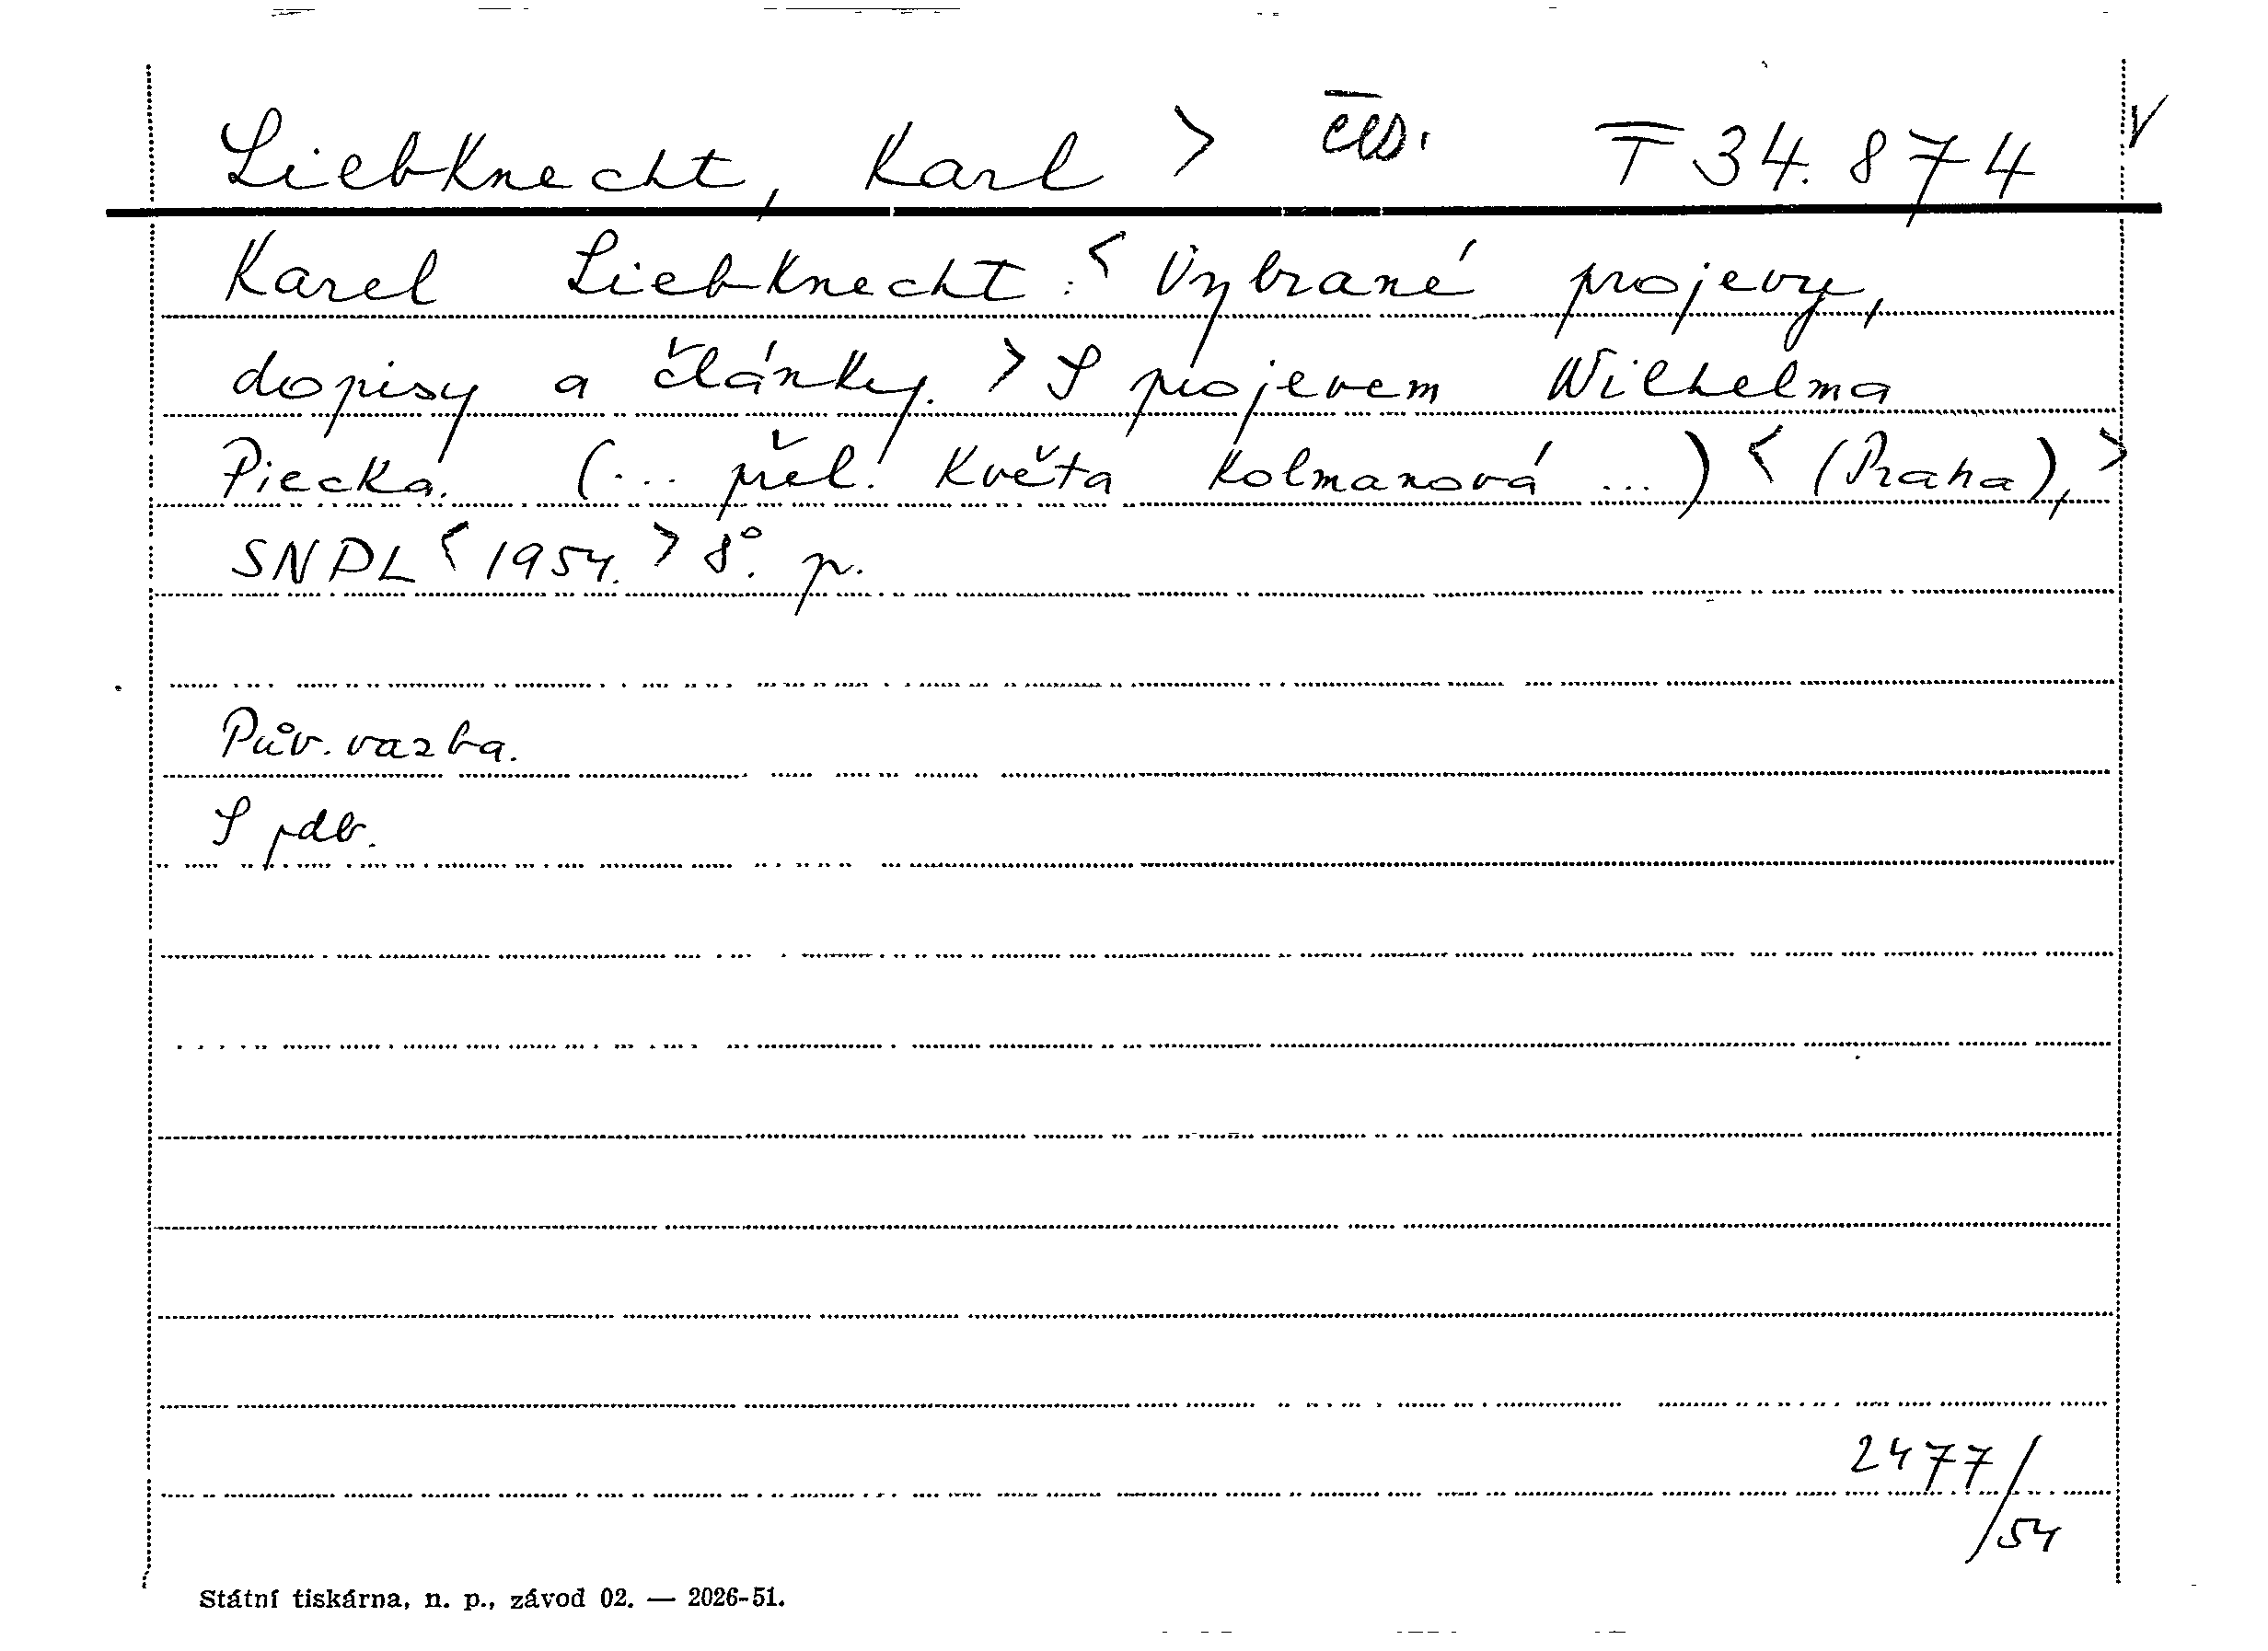 Liebknecht, Karl > T 34.874 V
Karel Liebknecht: < Vybrané projevy,
dopisy a články. > S projevem Wilhelma
Piecka. (... přel. Květa Kolmanová ...) < (Praha), >
SNPL < 1954. > 8°. p.
Pův. vazba.
S pdb.
2477/
54
Státní tiskárna, n. p., závod 02. — 2026-51.